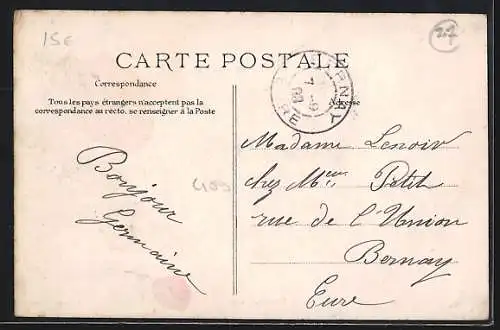 15€
22
CARTE POSTALE
Correspondance
Tous les pays étrangers n'acceptent pas la
correspondance au recto, se renseigner à la Poste
Adresse
BERNAY
EURE
Bonjour
Germaine
Madame Lenoir
chez Mme Petit
rue de l'Union
Bernay
Eure